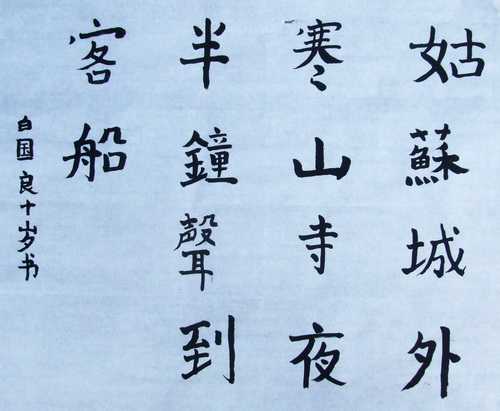 姑蘇城外
寒山寺夜
半鐘聲到
客船
白国良十岁书